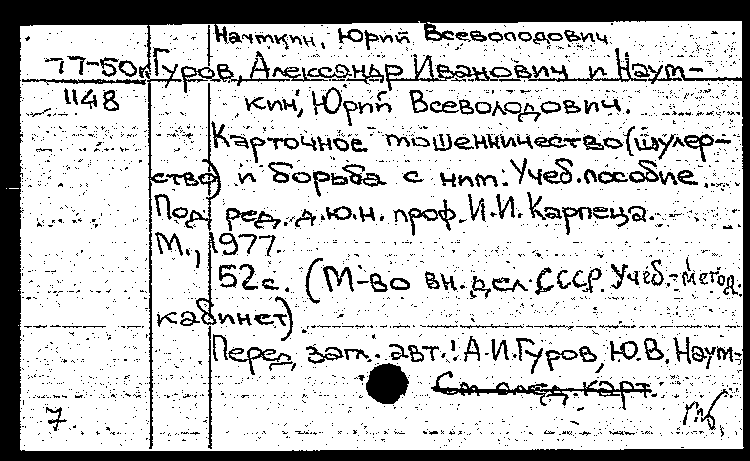 Науткин, Юрий Всеволодович
77-50к Гуров, Александр Иванович и Наут-
1148 кин, Юрий Всеволодович.
Карточное мошенничество (шулер-
ство) и борьба с ним. Учеб. пособие.
Под ред. д.ю.н. проф. И.И. Карпеца.
М., 1977.
52с. (М-во вн. дел СССР. Учеб.-метод.
кабинет)
Перед загл. авт.: А.И. Гуров, Ю.В. Наут-
См. след. карт.
7